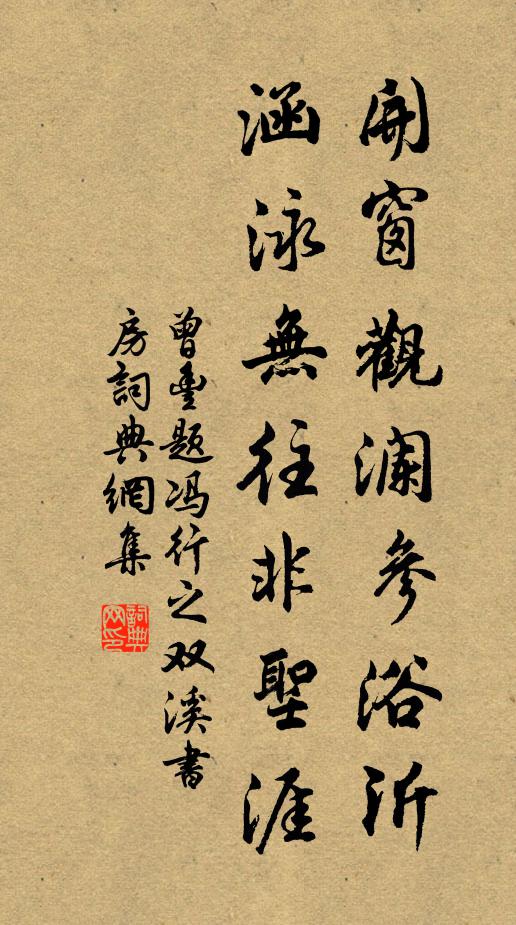 開窗觀瀾參浴沂
涵泳無往非聖涯
曾豐題馮行之双溪書
房詞典網集
詞典
网印